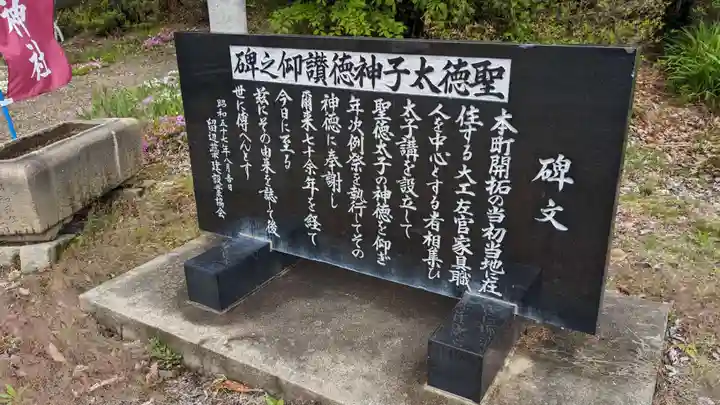 聖徳太子神徳讃仰之碑
碑文
本町開拓の当初当地に在
住する大工左官家具職
人を中心とする者相集ひ
太子講を設立して
聖徳太子の神徳を仰ぎ
年次例祭を執行てその
神徳に奉謝し
爾来七十余年を経て
今日に至る
茲にその由来を誌して後
世に傳へんとす
昭和五十七年八月吉日
留辺蘂建設業協会
神社